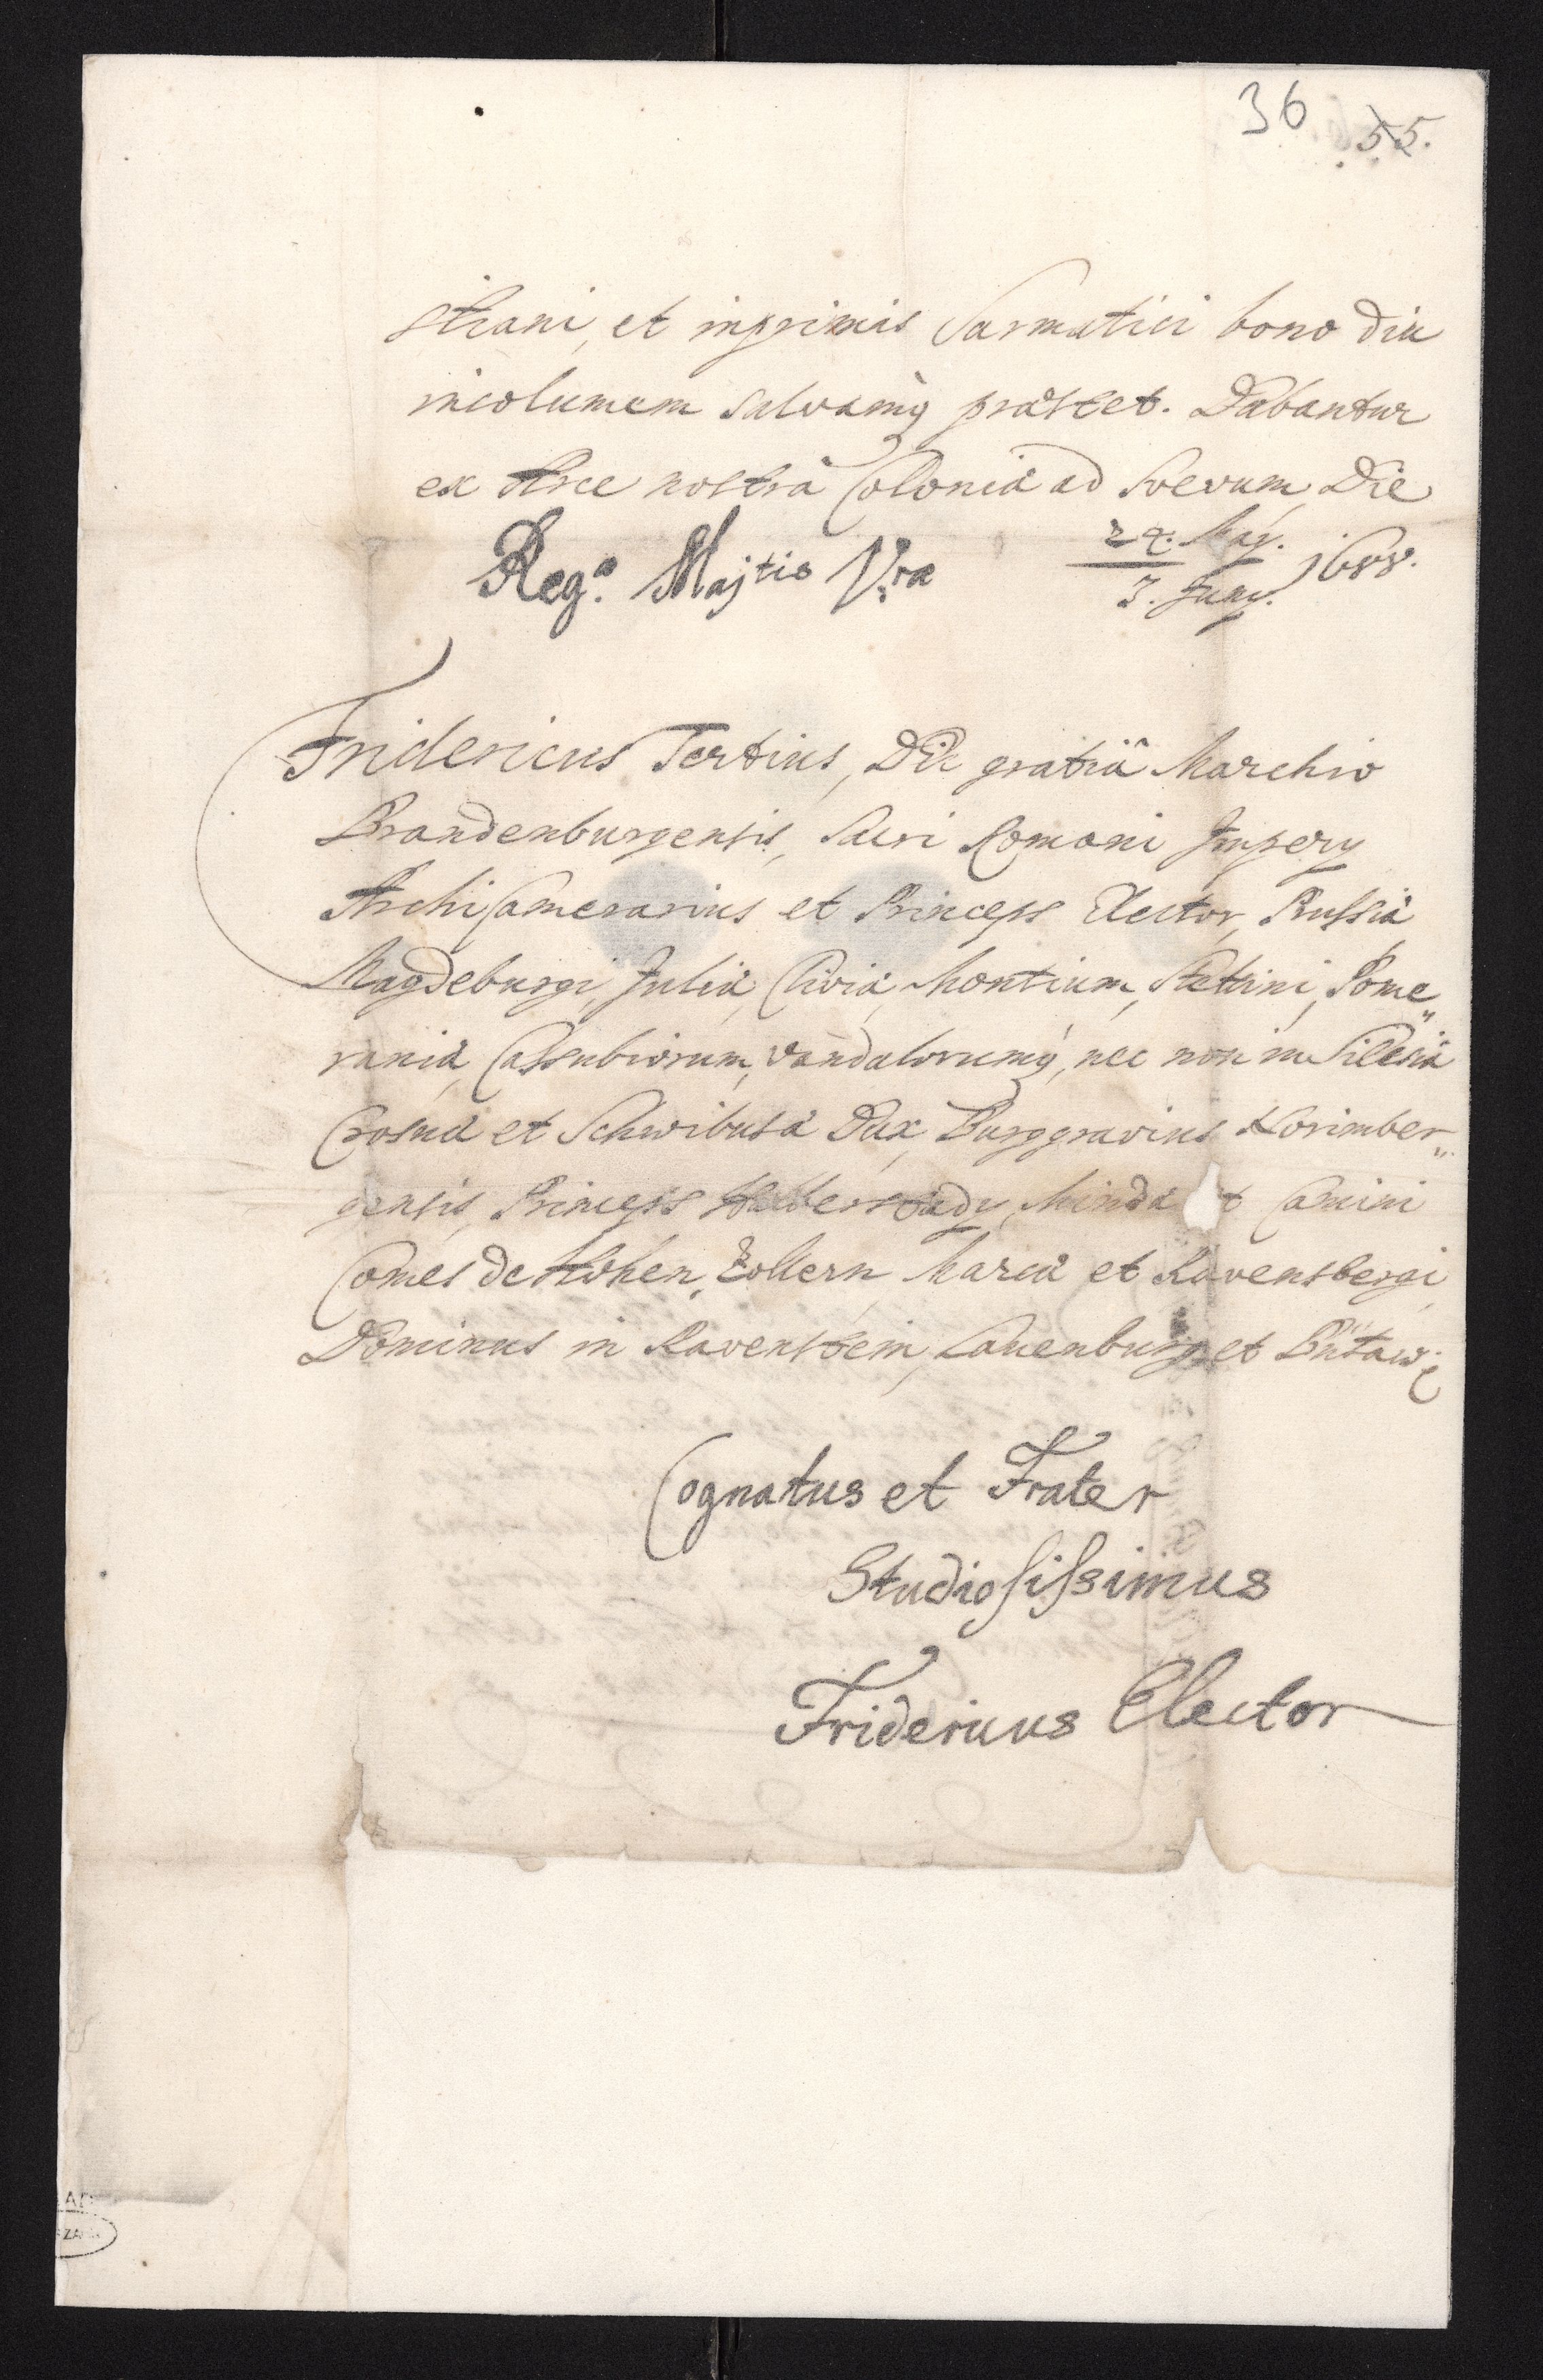 36
55.
stiani, et inprimis Sarmatici bono diu
incolumem salvamq́ præstet. Dabantur
ex Arce nostrâ Coloniæ ad Suevum, Die
24. Maÿ.
3. Junÿ. 1688.
Reg.æ Majtis Vræ
Fridericus Tertius, Dei gratiâ Marchio
Brandenburgensis, Sacri Romani Imperÿ
ArchiCamerarius et Princeps Elector, Prussiæ
Magdeburgi, Juliæ, Cliviæ, Montium, Stettini, Pome„
raniæ, Cassubiorum, Vandalorumq́, nec non in Silesiâ
Crosnæ et Schwibusæ Dux, Burggravius Norimber„
gensis, Princeps Halberstadÿ, Mindæ et Camini
Comes de Hohen, Zollern, Marcæ et Ravensbergi,
Dominus in Ravenstein, Lauenburg et Bütaw
Cognatus et Frater
Studiosissimus
Fridericus Elector